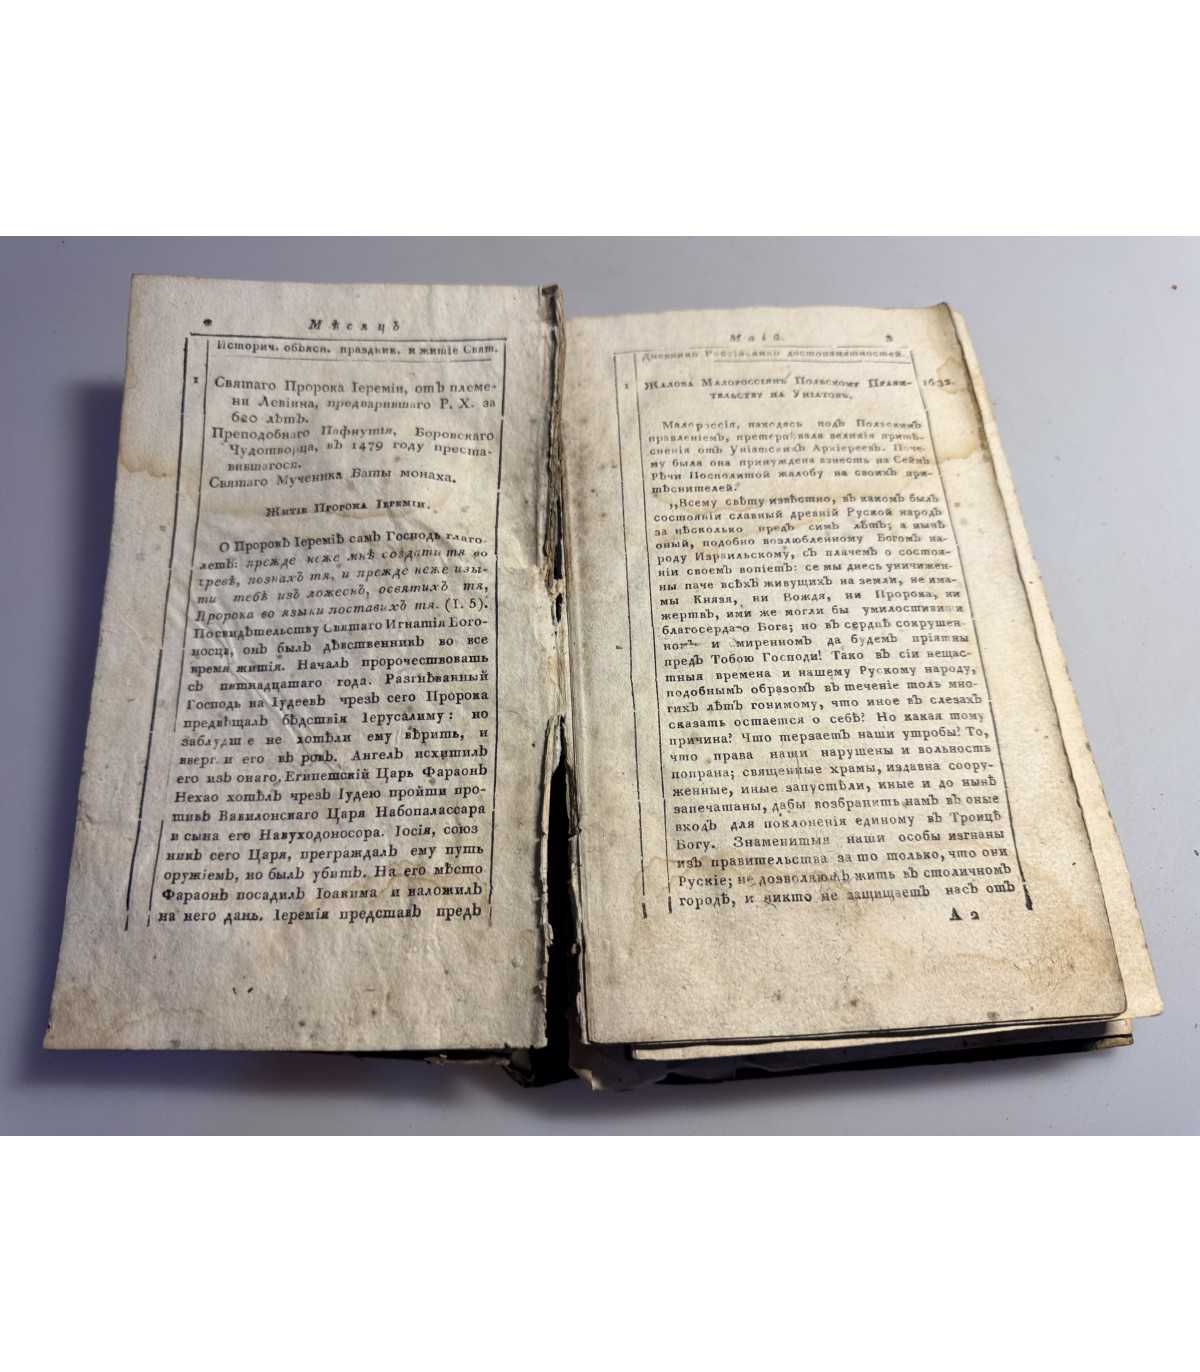 2
Мѣсяцъ
Историч. объясн. праздник. и житіе Свят.
1 Святаго Пророка Іереміи, отъ племе-
ни Левіина, предварившаго Р. Х. за
620 лѣтъ.
Преподобнаго Пафнутія, Боровскаго
Чудотворца, въ 1479 году преста-
вившагося.
Святаго Мученика Ваты монаха.
Житіе Пророка Іереміи.
О Пророкѣ Іереміѣ самъ Господь глаго-
летъ: прежде неже мнѣ создати тя во
чревѣ, познахъ тя, и прежде неже изы-
ти тебѣ изъ ложеснъ, освятихъ тя,
Пророка во языки поставихъ тя. (I. 5).
Посвидѣтельству Святаго Игнатія Бого-
носца, онъ былъ дѣвственникъ во все
время житія. Началъ пророчествовать
съ пятнадцатаго года. Разгнѣванный
Господь на Іудеевъ чрезъ сего Пророка
предвѣщалъ бѣдствія Іерусалиму: но
заблудшіе не хотѣли ему вѣрить, и
вверг и его въ ровъ. Ангелъ исхитилъ
его изъ онаго. Египетскій Царь Фараонъ
Нехао хотѣлъ чрезъ Іудею пройти про-
тивъ Вавилонскаго Царя Набопалассара
и сына его Навуходоносора. Іосія, союз
никъ сего Царя, преграждалъ ему путь
оружіемъ, но былъ убитъ. На его мѣсто
Фараонъ посадилъ Іоакима и наложилъ
на него дань. Іеремія представъ предъ
Маій. 3
Дневникъ Россійскихъ достопамятностей.
1 Жалоба Малороссіянъ Польскому Прави- 1632.
тельству на Уніатовъ.
Малороссія, находясь подъ Польскимъ
правленіемъ, претерпѣвала великія притѣ-
сненія отъ Уніатскихъ Архіереевъ. Поче-
му была она принуждена взнесть на Сеймъ
Рѣчи Посполитой жалобу на своихъ при-
тѣснителей.
„Всему свѣту извѣстно, въ какомъ былъ
состояніи славный древній Руской народъ
за нѣсколько предъ симъ лѣтъ; а нынѣ
оный, подобно возлюбленному Богомъ на-
роду Израильскому, съ плачемъ о состоя-
ніи своемъ вопіетъ: се мы днесь уничижен-
ны паче всѣхъ живущихъ на земли, не има-
мы Князя, ни Вождя, ни Пророка, ни
жертвъ, ими же могли бы умилостивити
благосердаго Бога; но въ сердцѣ сокрушен-
номъ и смиренномъ да будемъ пріятны
предъ Тобою Господи! Тако въ сіи несщас-
тныя времена и нашему Рускому народу,
подобнымъ образомъ въ теченіе толь мно-
гихъ лѣтъ гонимому, что иное въ слезахъ
сказать остается о себѣ? Но какая тому
причина? Что терзаетъ наши утробы? То,
что права наши нарушены и вольность
попрана; священные храмы, издавна соору-
женные, иные запустѣли, иные и до нынѣ
запечатаны, дабы возбранить намъ въ оные
входъ для поклоненія единому въ Троицѣ
Богу. Знаменитыя наши особы изгнаны
изъ правительства за то только, что они
Рускіе; не дозволяютъ жить въ столичномъ
городѣ, и никто не защищаетъ насъ отъ
А 2